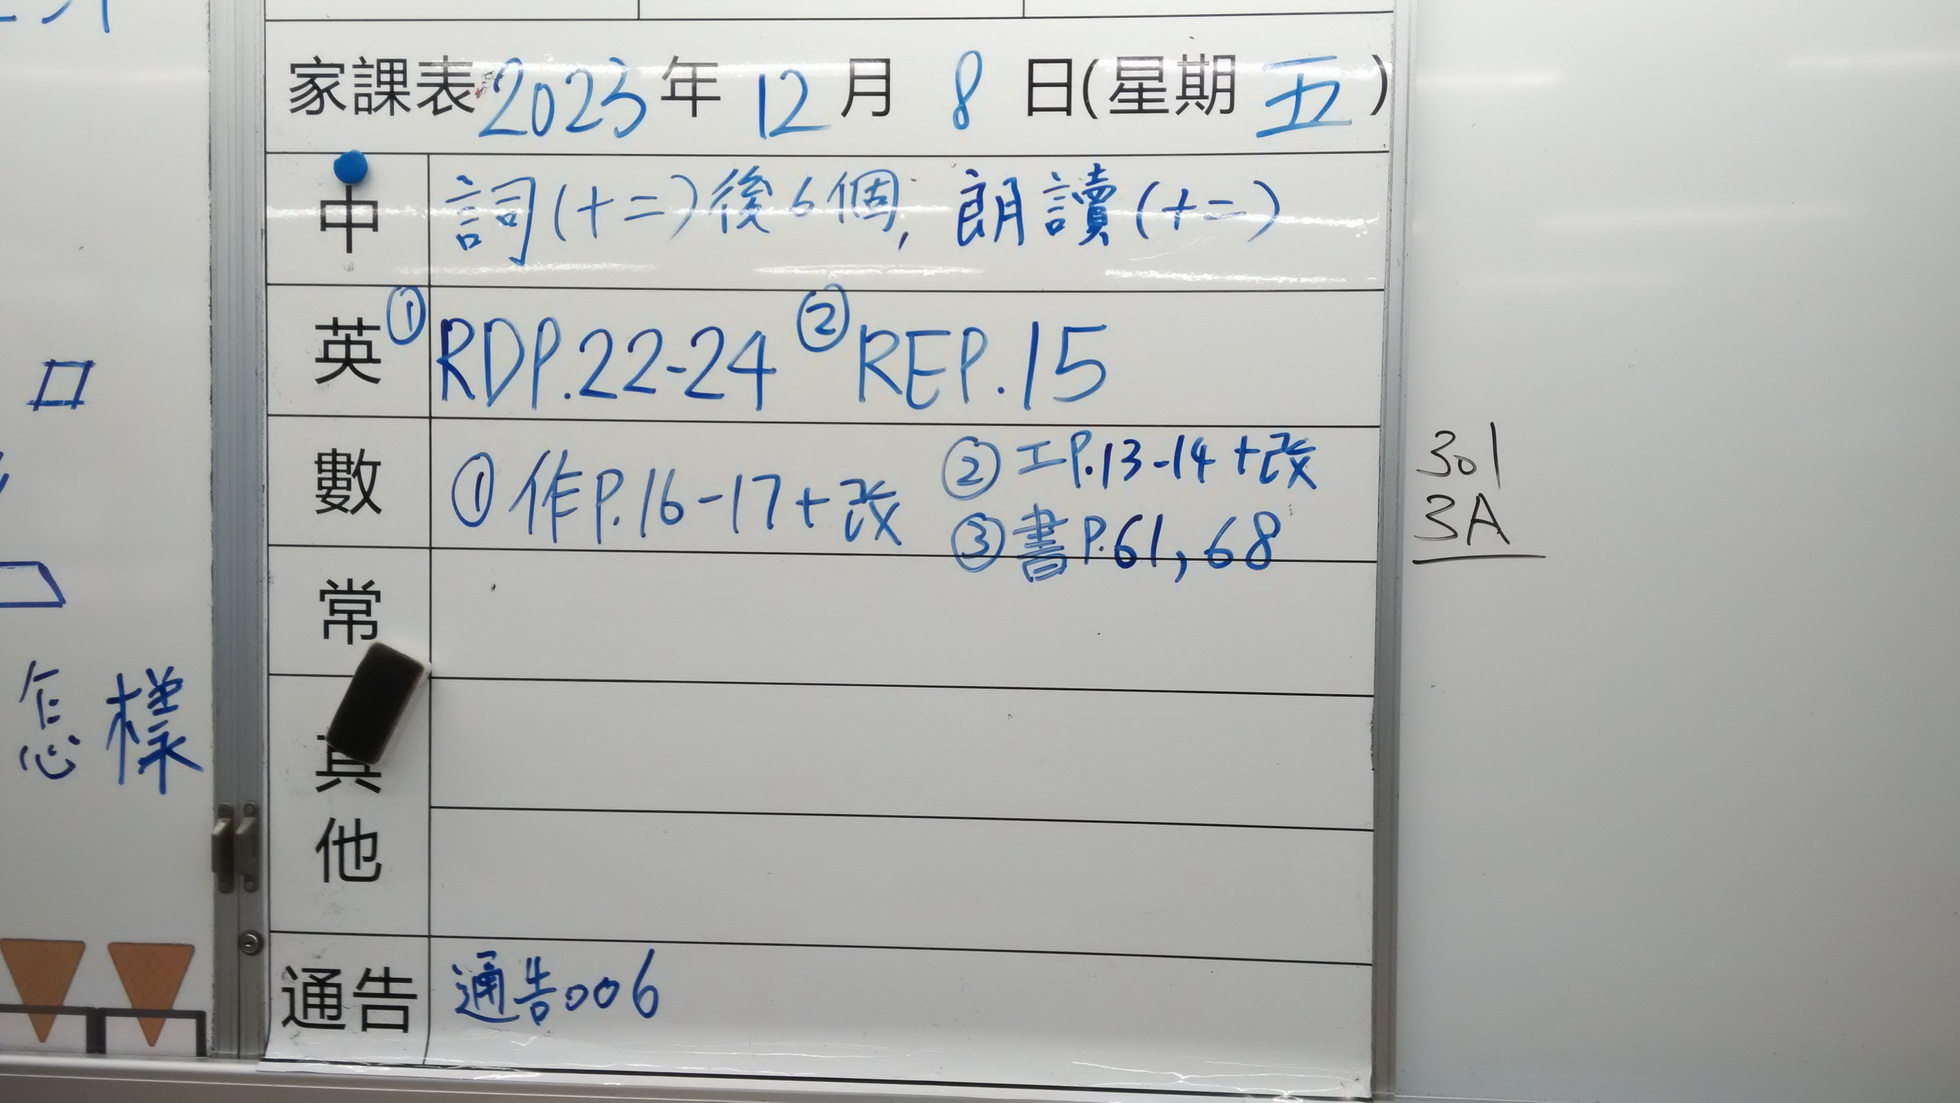 家課表 2023年 12月 8日(星期五)
中 詞(十二)後6個, 朗讀(十二)
英 ①RDP.22-24 ②REP.15
數 ①作P.16-17+改 ②工P.13-14+改
③書P.61, 68
常
其他
通告 通告006
301
3A
怎樣